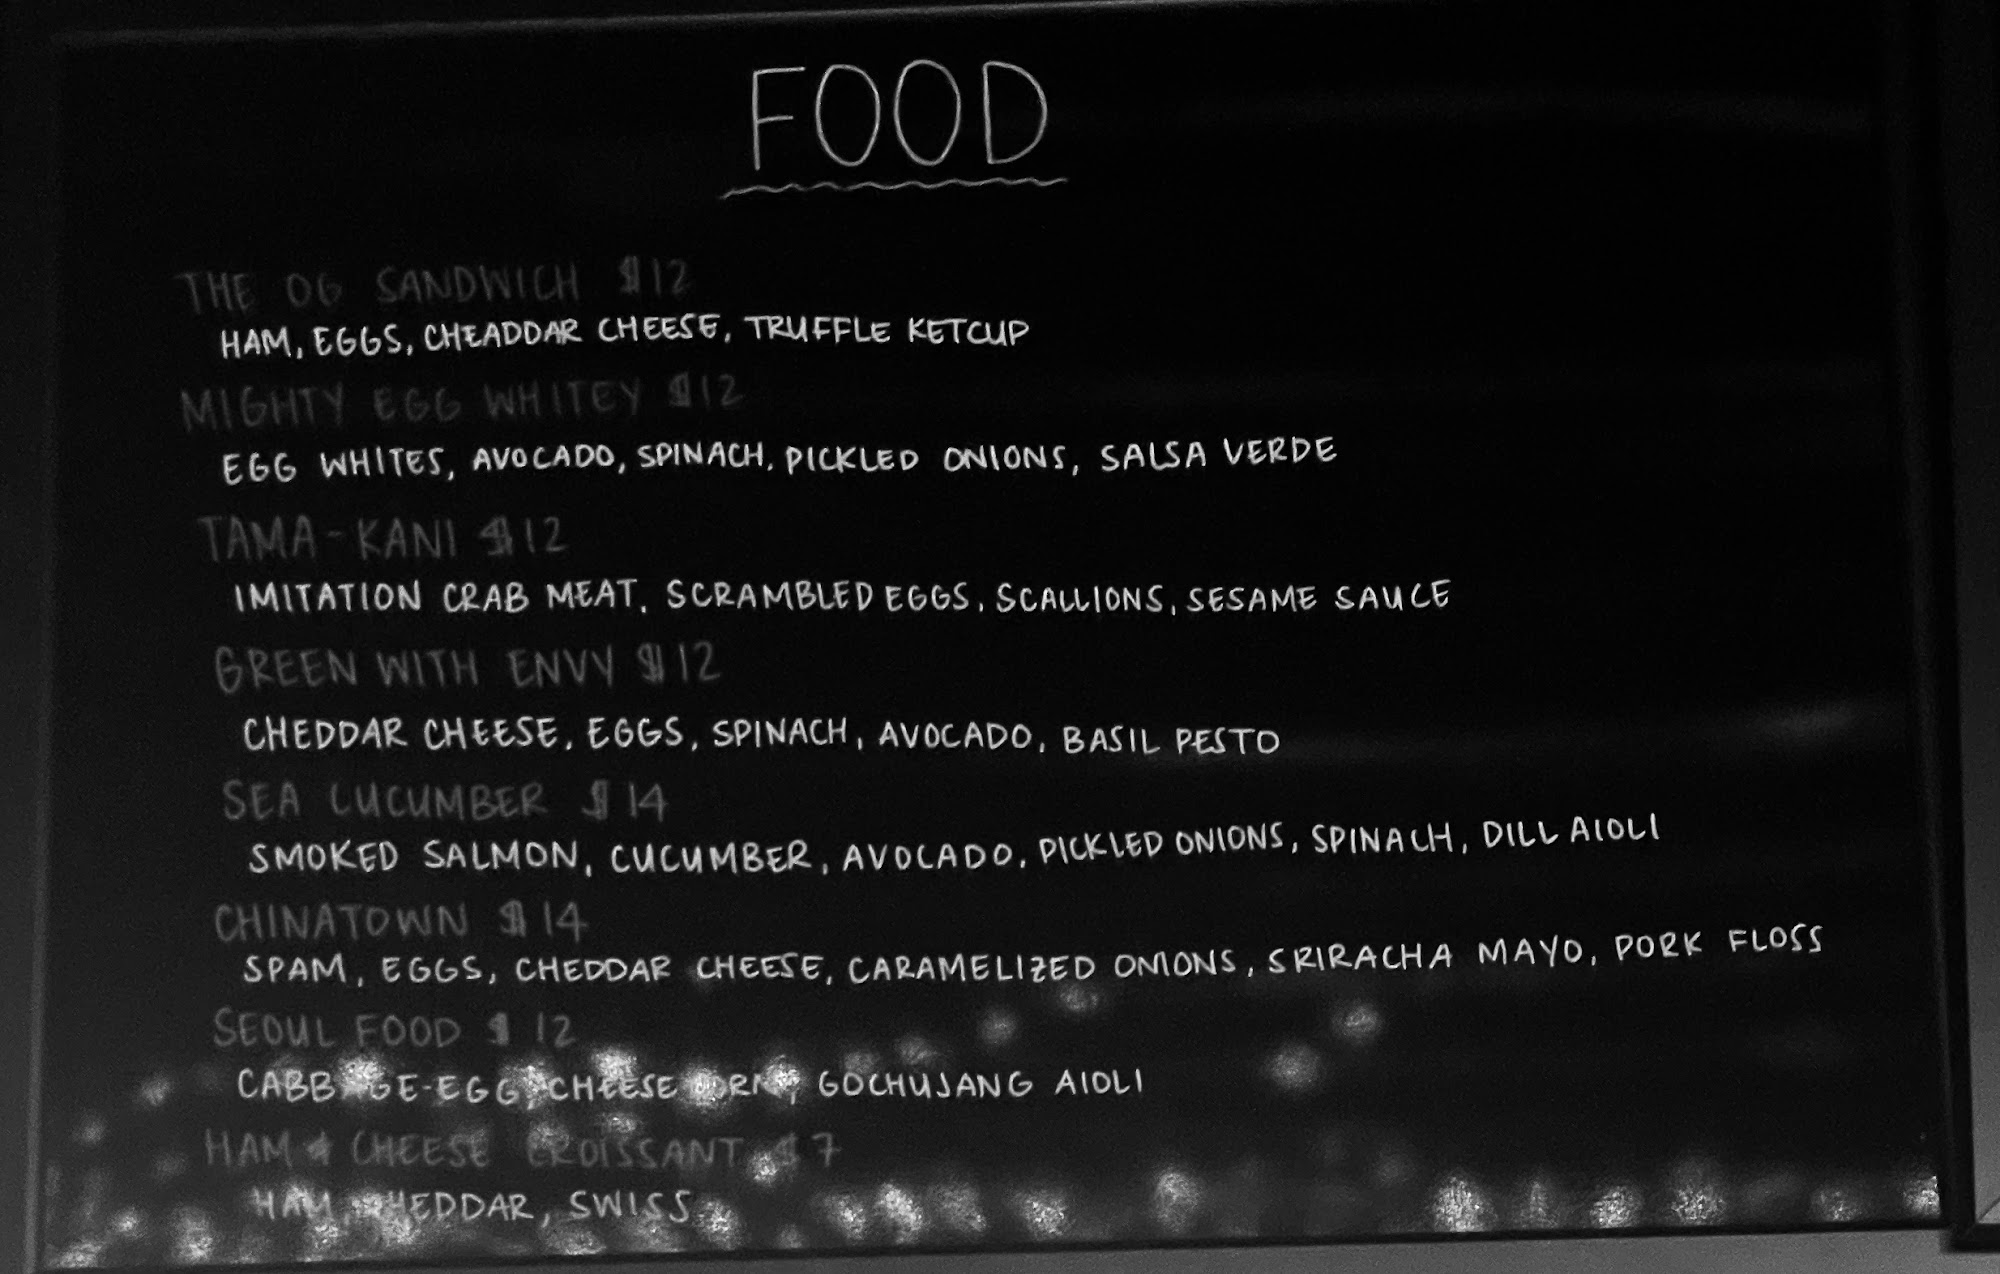 FOOD
THE OG SANDWICH $12
HAM, EGGS, CHEADDAR CHEESE, TRUFFLE KETCUP
MIGHTY EGG WHITEY $12
EGG WHITES, AVOCADO, SPINACH, PICKLED ONIONS, SALSA VERDE
TAMA-KANI $12
IMITATION CRAB MEAT, SCRAMBLED EGGS, SCALLIONS, SESAME SAUCE
GREEN WITH ENVY $12
CHEDDAR CHEESE, EGGS, SPINACH, AVOCADO, BASIL PESTO
SEA CUCUMBER $14
SMOKED SALMON, CUCUMBER, AVOCADO, PICKLED ONIONS, SPINACH, DILL AIOLI
CHINATOWN $14
SPAM, EGGS, CHEDDAR CHEESE, CARAMELIZED ONIONS, SRIRACHA MAYO, PORK FLOSS
SEOUL FOOD $12
CABBAGE-EGG, CHEESE CORN, GOCHUJANG AIOLI
HAM & CHEESE CROISSANT $7
HAM, CHEDDAR, SWISS